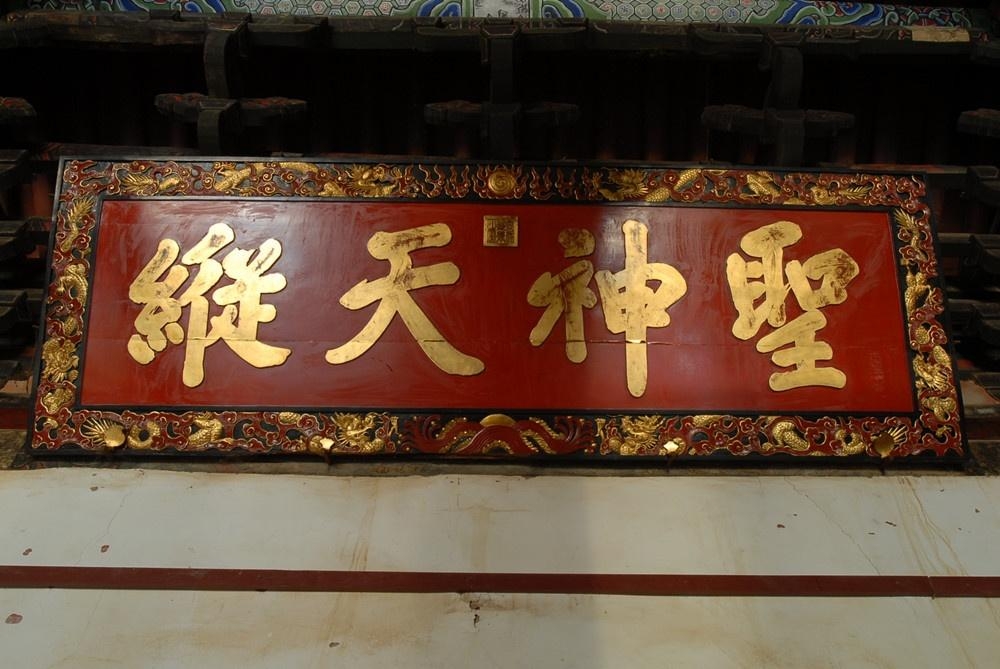 聖神天縱